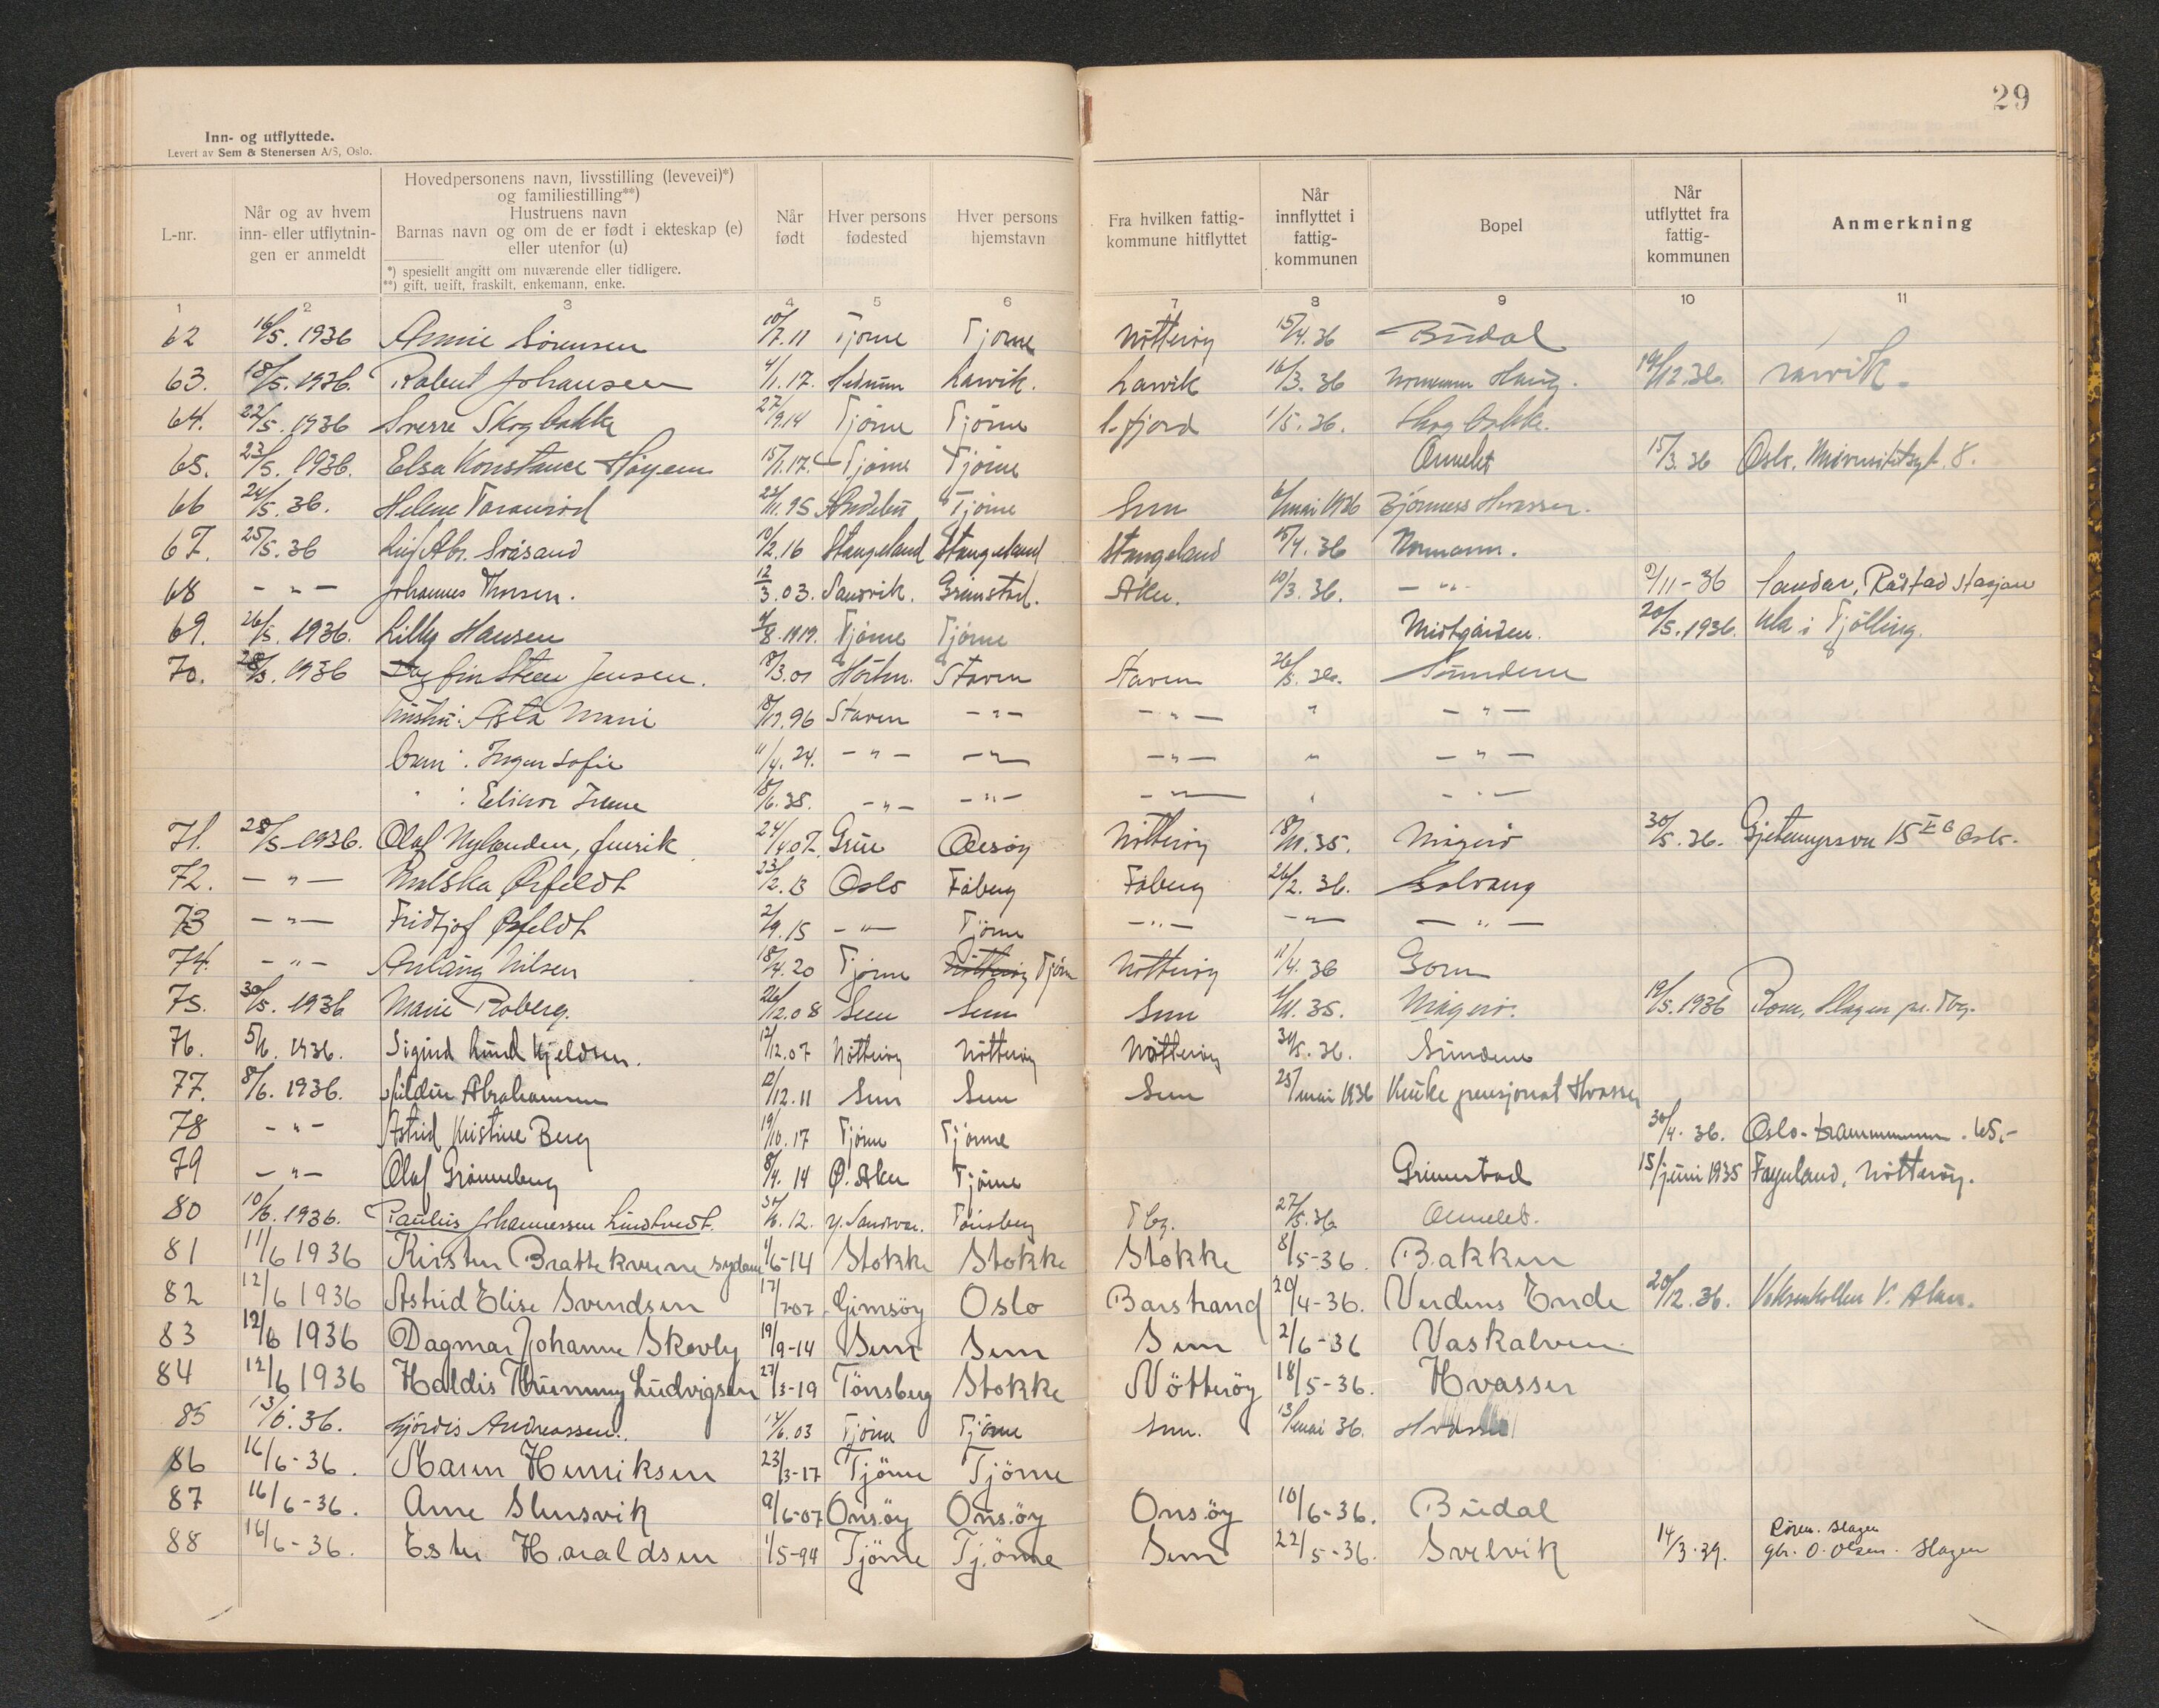 29
Inn- og utflyttede.
Levert av Sem & Stenersen A/S, Oslo.
L-nr.
Når og av hvem inn- eller utflytnin-gen er anmeldt
Hovedpersonens navn, livsstilling (levevei)*) og familiestilling**)
Hustruens navn
Barnas navn og om de er født i ekteskap (e) eller utenfor (u)
*) spesiellt angitt om nuværende eller tidligere.
**) gift, ugift, fraskilt, enkemann, enke.
Når født
Hver persons fødested
Hver persons hjemstavn
Fra hvilken fattig-kommune hitflyttet
Når innflyttet i fattig-kommunen
Bopel
Når utflyttet fra fattig-kommunen
Anmerkning
1 2 3 4 5 6 7 8 9 10 11
62 16/5. 1936 Annie Sørensen 10/7.11 Tjøme Tjøme Nøtterøy 15/4.36 Budal
63. 18/5. 1936. Robert Johansen 4/1.17. Hedrum Larvik. Larvik 16/3.36 Normann Haug. 19/12.36. Larvik.
64. 22/5. 1936 Sverre Skogbakke 27/9.14 Tjøme Tjøme 1/5.36. Skogbakke.
65. 23/5. 1936. Elsa Konstance Høyem 15/1.17. Tjøme Tjøme 15/3.36 Oslo. 8.
66 24/5. 36. Helene 22/11.95 Andebu Tjøme Sem 6/mai 1936 Bjønnes Hvasser.
67. 25/5. 36 Leif Abr. 10/2.16 Stangeland Stangeland Stangeland 15/4.36 Normann.
68 - " - Johannes Thorsen. 12/3.03. Sandvik. Grimstad. Aker. 10/3.36. - " - 9/11-36 Sandar, Råstad stasjon
69. 26/5. 1936. Lilly Hansen 4/8.1919. Tjøme Tjøme Midtgården. 20/5.1936. Ula i Tjølling.
70. 28/5. 1936 Dagfin Steen Jensen. 18/3.01 Stavern Stavern 26/5.36. Sundene
hustru: Asta Marie 18/12.96 Stavern - " - - " - " - " -
barn: Inger Sofie 11/4.24. - " - - " - - " - " - " -
" : Elinor Irene 18/6.35. - " - - " - - " - " - " -
71. 28/5 1936. Olaf Nylenden, 24/4.07. Grue Nøtterøy 18/11.35. Mågerø 30/5.36. Gjetemyrsvn 15 Oslo.
72. - " - Ørfeldt 23/2.13 Oslo Fåberg Fåberg 26/2.36. Solvang
73 - " - Fridtjof Ørfeldt 2/9.15 - " - Tjøme - " - - " - - " -
74. - " - Nilsen 18/4.20 Tjøme Nøtterøy Tjøm Nøtterøy 11/4.36 Gorn
75. 30/5. 1936 Marie Roberg. 26/12.08 Sem Sem Sem 1/11.35. Mågerø. 19/5.1936 Rom, Slagen pr. Tbg.
76. 5/6. 1936. Sigurd Lund Kjeldsen. 12/12.07 Nøtterøy Nøtterøy Nøtterøy 30/5.36. Sundene
77. 8/6. 1936. Hildur Abrahamsen 12/12.11 Sem Sem Sem 25/mai 1936 pensjonat Hvasser
78 - " - Astrid Kristine Berg 19/10.17 Tjøme Tjøme 30/4.36. Oslo-
79 - " - Olaf Grønneberg 8/4.14 Ø. Aker Tjøme Grimestad 15/juni 1935 Føynland, Nøtterøy.
80 10/6. 1936. Paulus Johannessen Lindtvedt. 30/6.12. Y. Sandsvær. Tønsberg Tbg. 27/5.36 Ormelet.
81 11/6 1936 Kirsten Brattekverne sydame 1/6-14 Stokke Stokke Stokke 8/5-36. Bakken
82 12/6 1936 Astrid Elise Svendsen 17/7-07 Gimsöy Oslo Barstrand 20/4-36. Verdens Ende 20/12.36. Voksenkollen V. Aker.
83 12/6 1936 Dagmar Johanne Skovly 19/9-14 Sem Sem Sem 2/6-36 Vaskalven
84 12/6 1936 Haldis Ludvigsen 27/3-19 Tönsberg Stokke Nötteröy 18/5-36. Hvasser
85 13/6. 36. Hjørdis Andreassen. 14/6.03 Tjøme Tjøme Sem. 13/mai 36. Hvasser
86 16/6-36. Maren Henriksen 23/3-17 Tjöme Tjöme
87 16/6-36. Arne Slensvik 9/6-07 Onsöy Onsöy Onsöy 10/6-36. Budal
88 16/6-36. Ester Haraldsen 1/5-94 Tjöme Tjöme Sem 22/5-36. Svelvik 14/3.39. Røren. Slagen
gbr. O. Olsen. Slagen